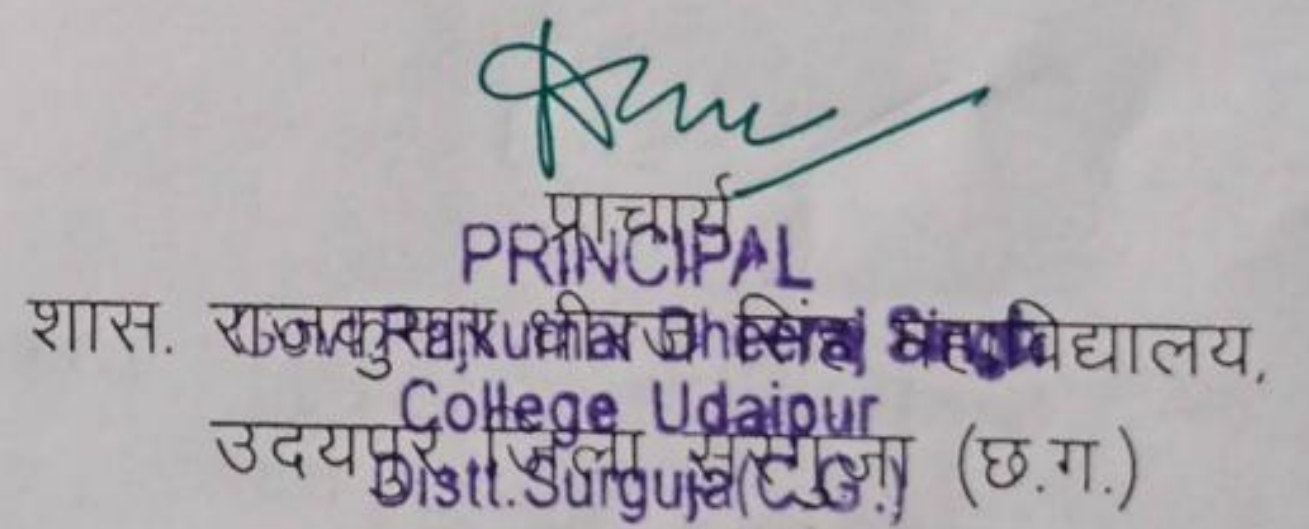 प्राचार्य
PRINCIPAL
शास. राजकुमार धीरज सिंह महाविद्यालय,
Govt. Rajkumar Dheeraj Singh
College Udaipur
उदयपुर जिला सरगुजा (छ.ग.)
Distt.Surguja(C.G.)